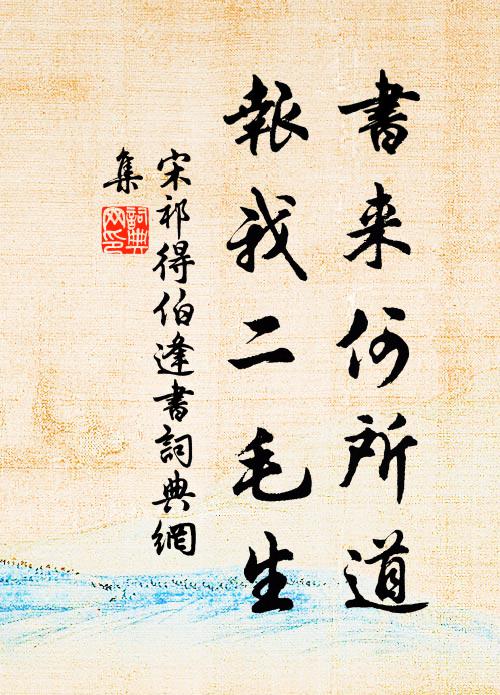 書来何所道
報我二毛生
宋祁得伯逢書詞典網
集
詞典
网印